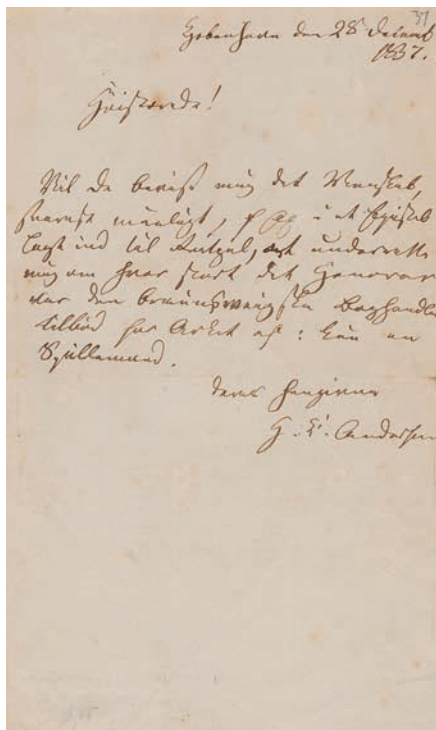 37
Kjøbenhavn den 28 Decemb
1837.
Høistærede!
Vil De beviise mig det Venskab,
snarest mueligt, i et Epistel
lagt ind til Reitzel, at underrette
mig om hvor stort det Honorar
var den braunsweigske Boghandler
tilbød for Arket af: kun en
Spillemand.
Deres hengivne
H. C. Andersen